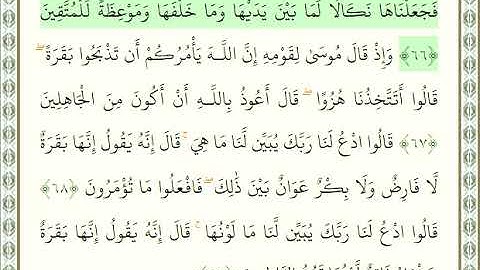 فَجَعَلْنَاهَا نَكَالًا لِّمَا بَيْنَ يَدَيْهَا وَمَا خَلْفَهَا وَمَوْعِظَةً لِّلْمُتَّقِينَ
﴿٦٦﴾ وَإِذْ قَالَ مُوسَىٰ لِقَوْمِهِ إِنَّ اللَّهَ يَأْمُرُكُمْ أَن تَذْبَحُوا بَقَرَةً ۖ
قَالُوا أَتَتَّخِذُنَا هُزُوًا ۖ قَالَ أَعُوذُ بِاللَّهِ أَنْ أَكُونَ مِنَ الْجَاهِلِينَ
﴿٦٧﴾ قَالُوا ادْعُ لَنَا رَبَّكَ يُبَيِّن لَّنَا مَا هِيَ ۚ قَالَ إِنَّهُ يَقُولُ إِنَّهَا بَقَرَةٌ
لَّا فَارِضٌ وَلَا بِكْرٌ عَوَانٌ بَيْنَ ذَٰلِكَ ۖ فَافْعَلُوا مَا تُؤْمَرُونَ ﴿٦٨﴾
قَالُوا ادْعُ لَنَا رَبَّكَ يُبَيِّن لَّنَا مَا لَوْنُهَا ۚ قَالَ إِنَّهُ يَقُولُ إِنَّهَا بَقَرَةٌ